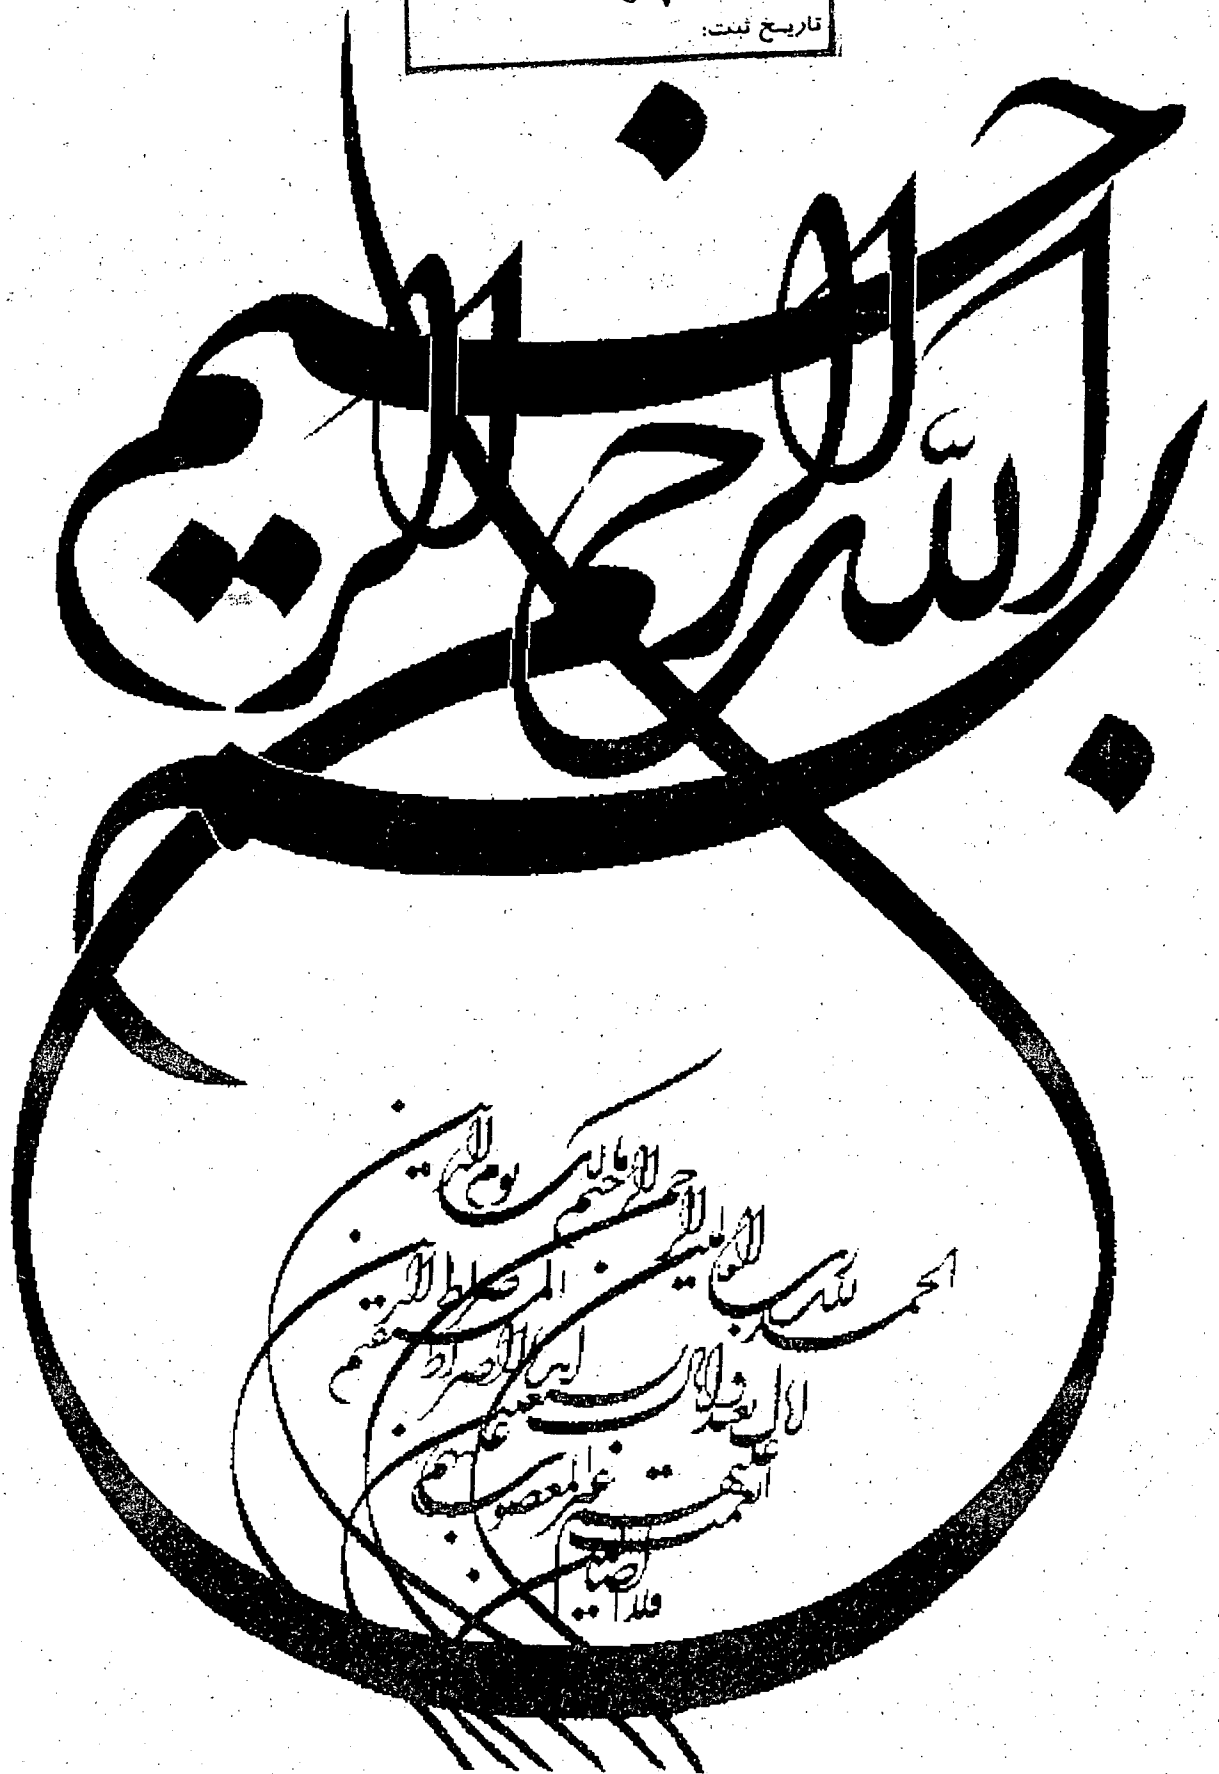 تاریخ ثبت:
بسم الله الرحمن الرحیم
الحمد لله رب العالمین الرحمن الرحیم مالک یوم الدین
ایاک نعبد و ایاک نستعین اهدنا الصراط المستقیم صراط الذین
انعمت علیهم غیر المغضوب علیهم
ولا الضالین